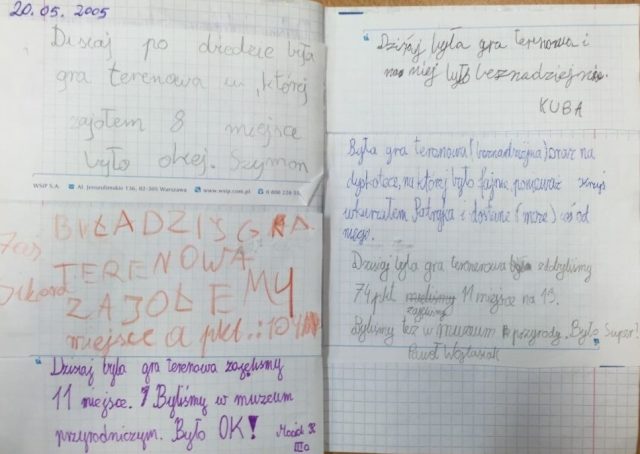 20.05.2005
Dzisiaj po obiedzie była
gra terenowa w której
zajołem 8 miejsce
było okej. Szymon
WSiP S.A. Al. Jerozolimskie 136, 02-305 Warszawa www.wsip.com.pl 0 800 220
BYŁA DZIŚ GRA
TERENOWA
ZAJOLEMY
miejsce a pkt.:104
Dzisiaj była gra terenowa zajęliśmy
11 miejsce. Byliśmy w muzeum
przyrodniczym. Było OK!
III a
Dzisiaj była gra terenowa i
na niej było beznadziejnie.
KUBA
Była gra terenowa (beznadziejna) oraz na
dyskotece, na której było fajnie, ponieważ
wkurzałem Patryka i dostanę (może) coś od
niego.
Dzisiaj była gra terenowa zdobyliśmy
74 pkt zajęliśmy 11 miejsce na 13.
Byliśmy też w muzeum przyrody. Było Super!
Paweł Wojtasiak